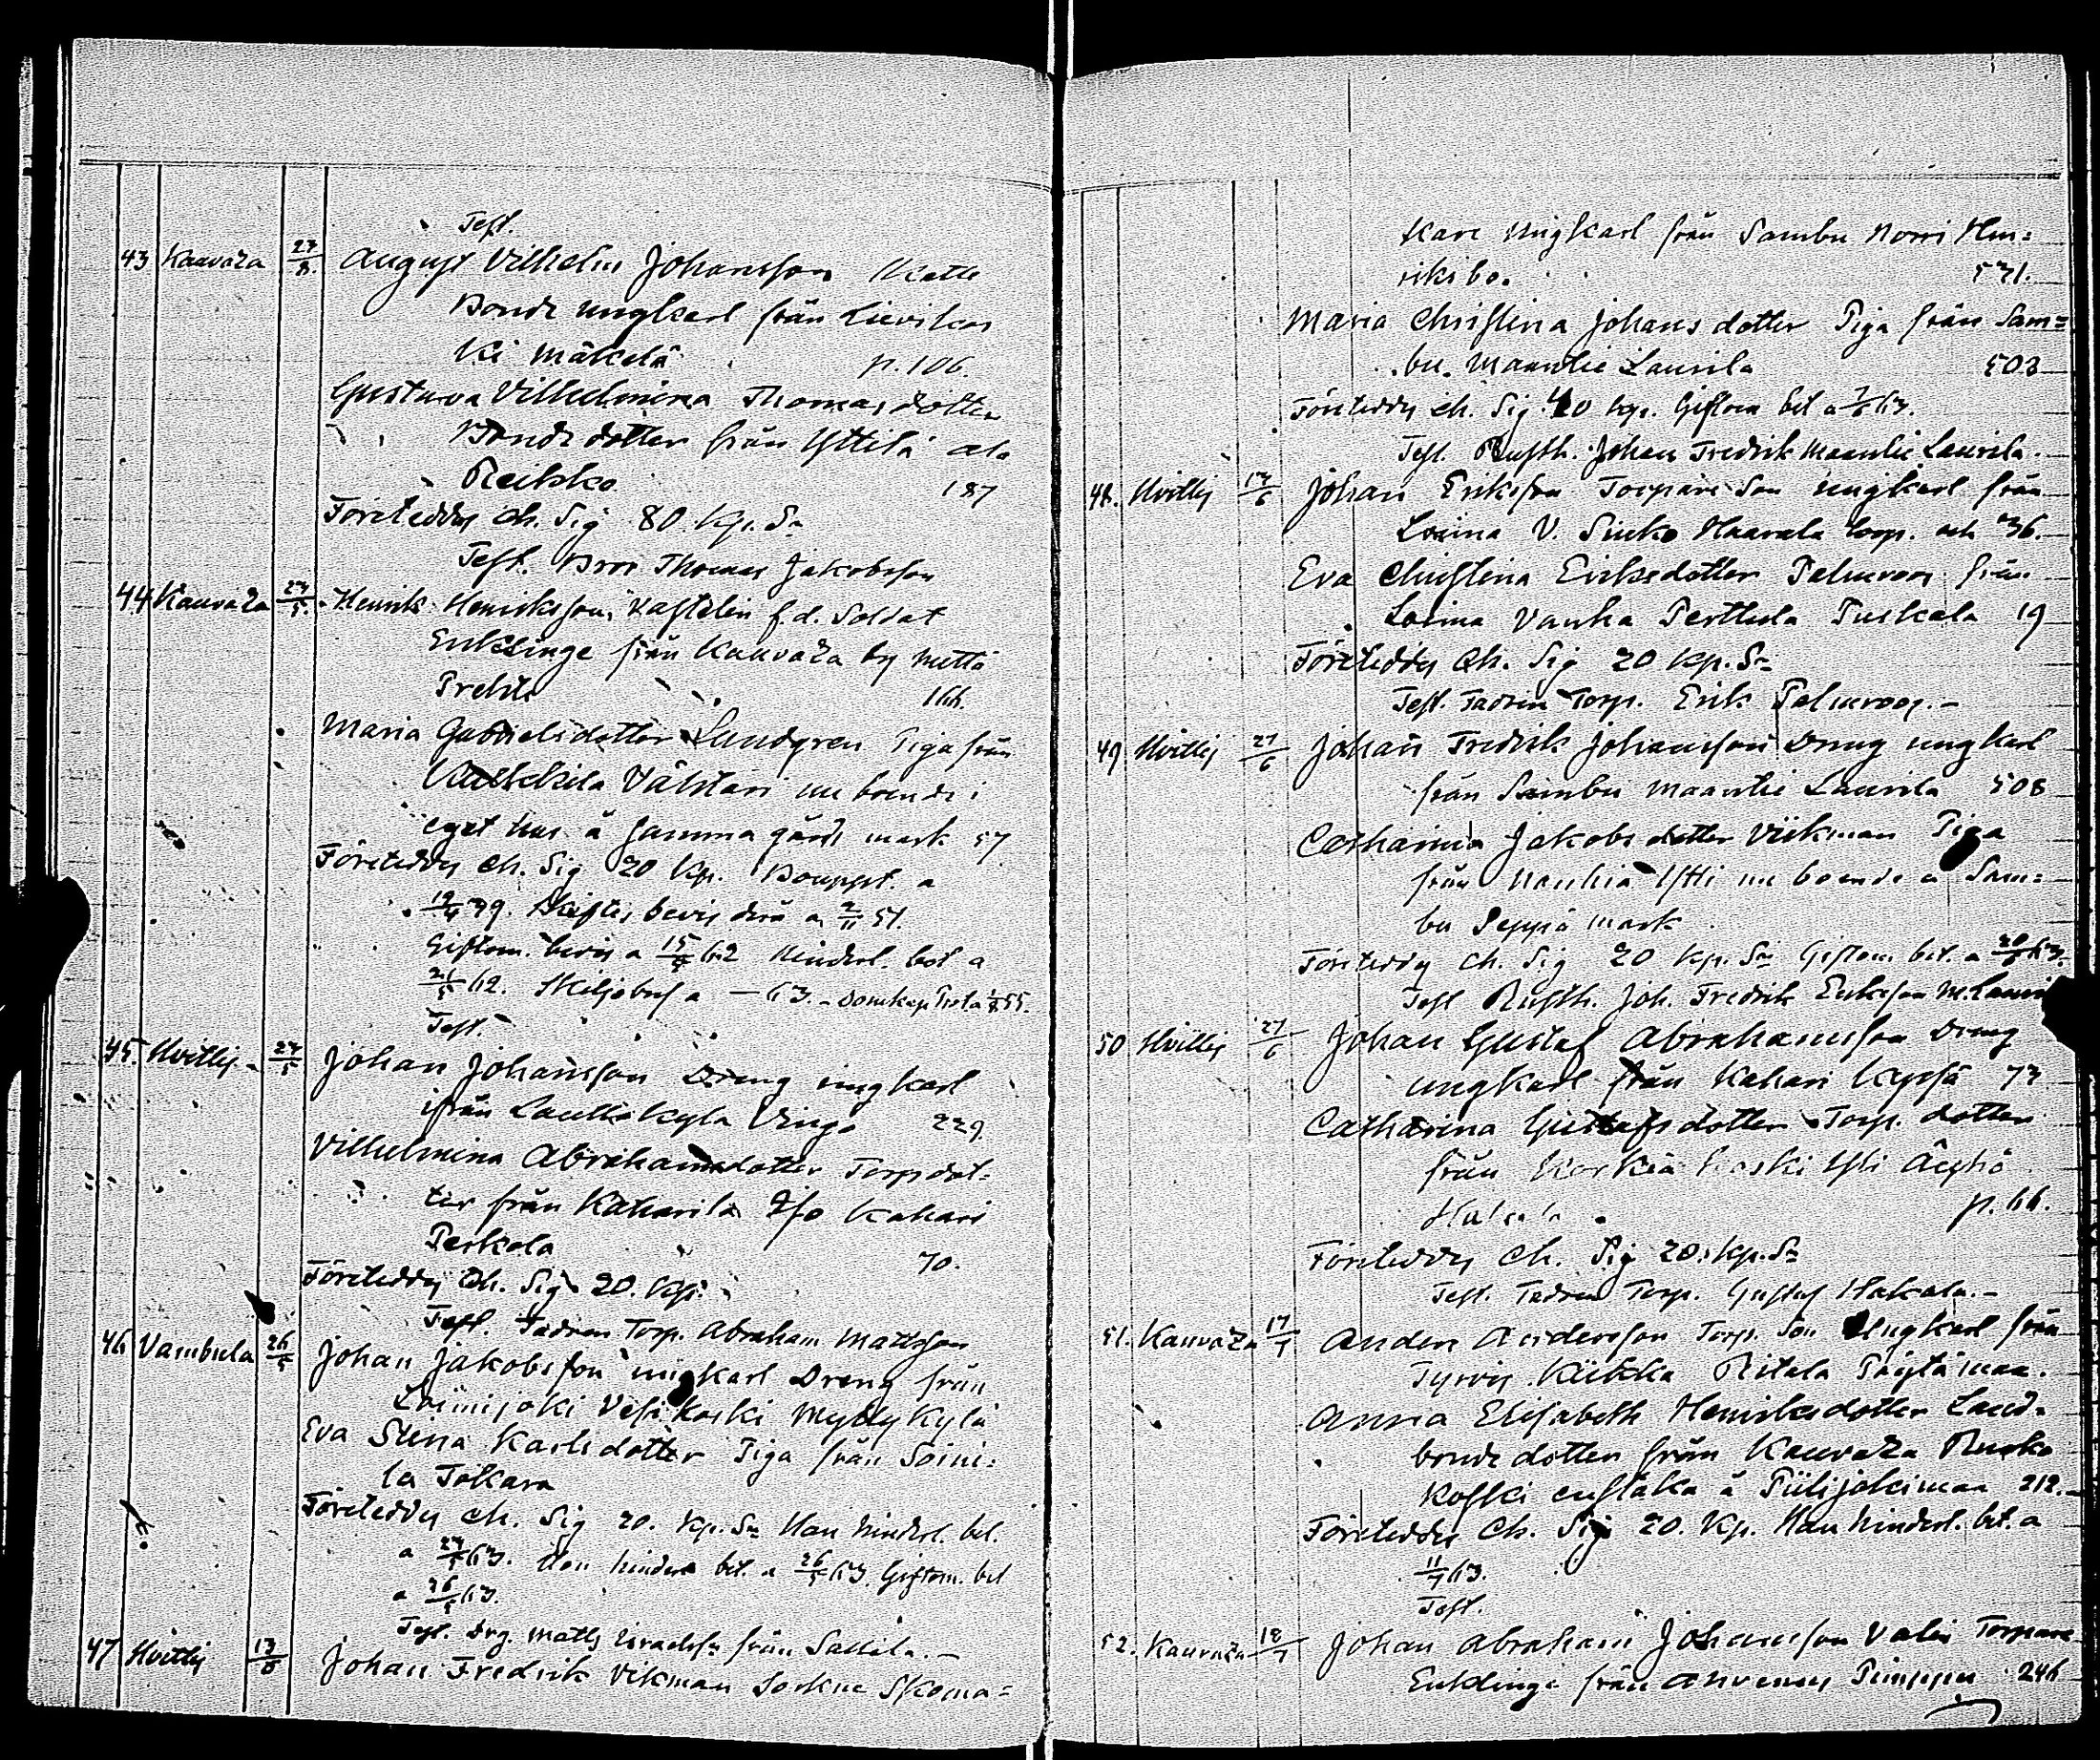 Test.
43 Kauvaza 27/8. August Vilhelm Johansson
Bonde ungkarl från Lievikos
ki Mäkelä p. 106.
Gustava Vilhelmina Thomasdotter
Bonde dotter från Yttilä ala
Reikko 187
Företeddes Ch. Sig 80 Kp. Sr
Test. Bror Thomas Jakobsson
44 Kauvaza 27/5. Henrik Henriksson, Kastelin f.d. Soldat
Enklinge från Kauvaza by
166.
Maria Gabrielsdotter Lundgren Piga från
Vähtäri nu boende i
eget hus å samma gårds mark 57
Företeddes Ch. Sig 20 Kp. Bouppt. a
39. Skiftes bevis a 2/11 51.
Giftom. bevis a 15/5 62 Hinderl. bet a
21/5 62. Skiljobref a — 63.
Test.
45. Hvittis 27/5 Johan Johansson Dreng ungkarl
ifrån Lauttakylä Vingo 229.
Vilhelmina Abrahamsdotter Torpdot=
ter från Kaharila Kahari
Perkola 70.
Företeddes Ch. Sig 20. Kp.
Test. Fadren Torp. Abraham Mattsson
46 Vambula 26/5 Johan Jakobsson ungkarl Dreng från
Loimijoki Vesikoski Myllykylä
Eva Stina Karlsdotter Piga från Soini=
la Tokara
Företeddes Ch. Sig 20. Kp. Sr Han hinderl. bet.
a 27/5 63. Hon hinder bet. a 26/5 63. Giftom. bet
a 26/5 63.
Test. Drg. Matts Israelss: från Sallila.—
47 Hvittis 13/6 Johan Fredrik Vikman Sockne Skoma=
kare ungkarl från Sambu Norri Hen=
riksbo. 571.
Maria Christina Johansdotter Piga från Sam=
bu. Maantie Laurila 508
Företeddes Ch. Sig. 40 kp. Giftom bet a 7/6 63.
Test. Rusth. Johan Fredrik Maantie Laurila.
48. Hvittis 17/6 Johan Eriksson Torpare Son ungkarl från
Loima V. Sinko Haavala torp. och 36.
Eva Christina Eriksdotter Palmroos från
Loima Vanha Perttula Puskala 19
Företeddes Ch. Sig 20 Kp. Sr
Test. Fadren Torp. Erik Palmroos.—
49 Hvittis 21/6 Johan Fredrik Johansson Dreng ungkarl
från Sambu Maantie Laurila 508
Catharina Jakobsdotter Viikman Piga
från Nanhia Ytti nu boende å Sam=
bu Seppä mark
Företeddes Ch. Sig 20 Kp. Sr Giftom. bet. a 20/6 63.
Test Rusth. Joh. Fredrik Eriksson M. Lauri
50 Hvittis 21/6 Johan Gustaf Abrahamsson Dreng
ungkarl från Kahari Kyssä 73
Catharina Gustafsdotter Torp. dotter
från Koskis Koski Yli Äyhö
Hakala p. 66.
Företeddes Ch. Sig 20. Kp. Sr
Test. Fadren Torp. Gustaf Hakala.—
51. Kauvaza 17/7 Anders Andersson Torp. Son Ungkarl från
Tyrvis Kiikka Ritala Pöytämaa.
Anna Elisabeth Henriksdotter Land-
bonde dotter från Kauvaza Rusko
koski Piilijokimaa 212.
Företeddes Ch. Sig 20. Kp. Han hinderl. bet. a
11/7 63.
Test.
52. Kauvaza 18/7 Johan Abraham Johansson Valin Torpare
Enklinge från Ahvenus Pimppu 246